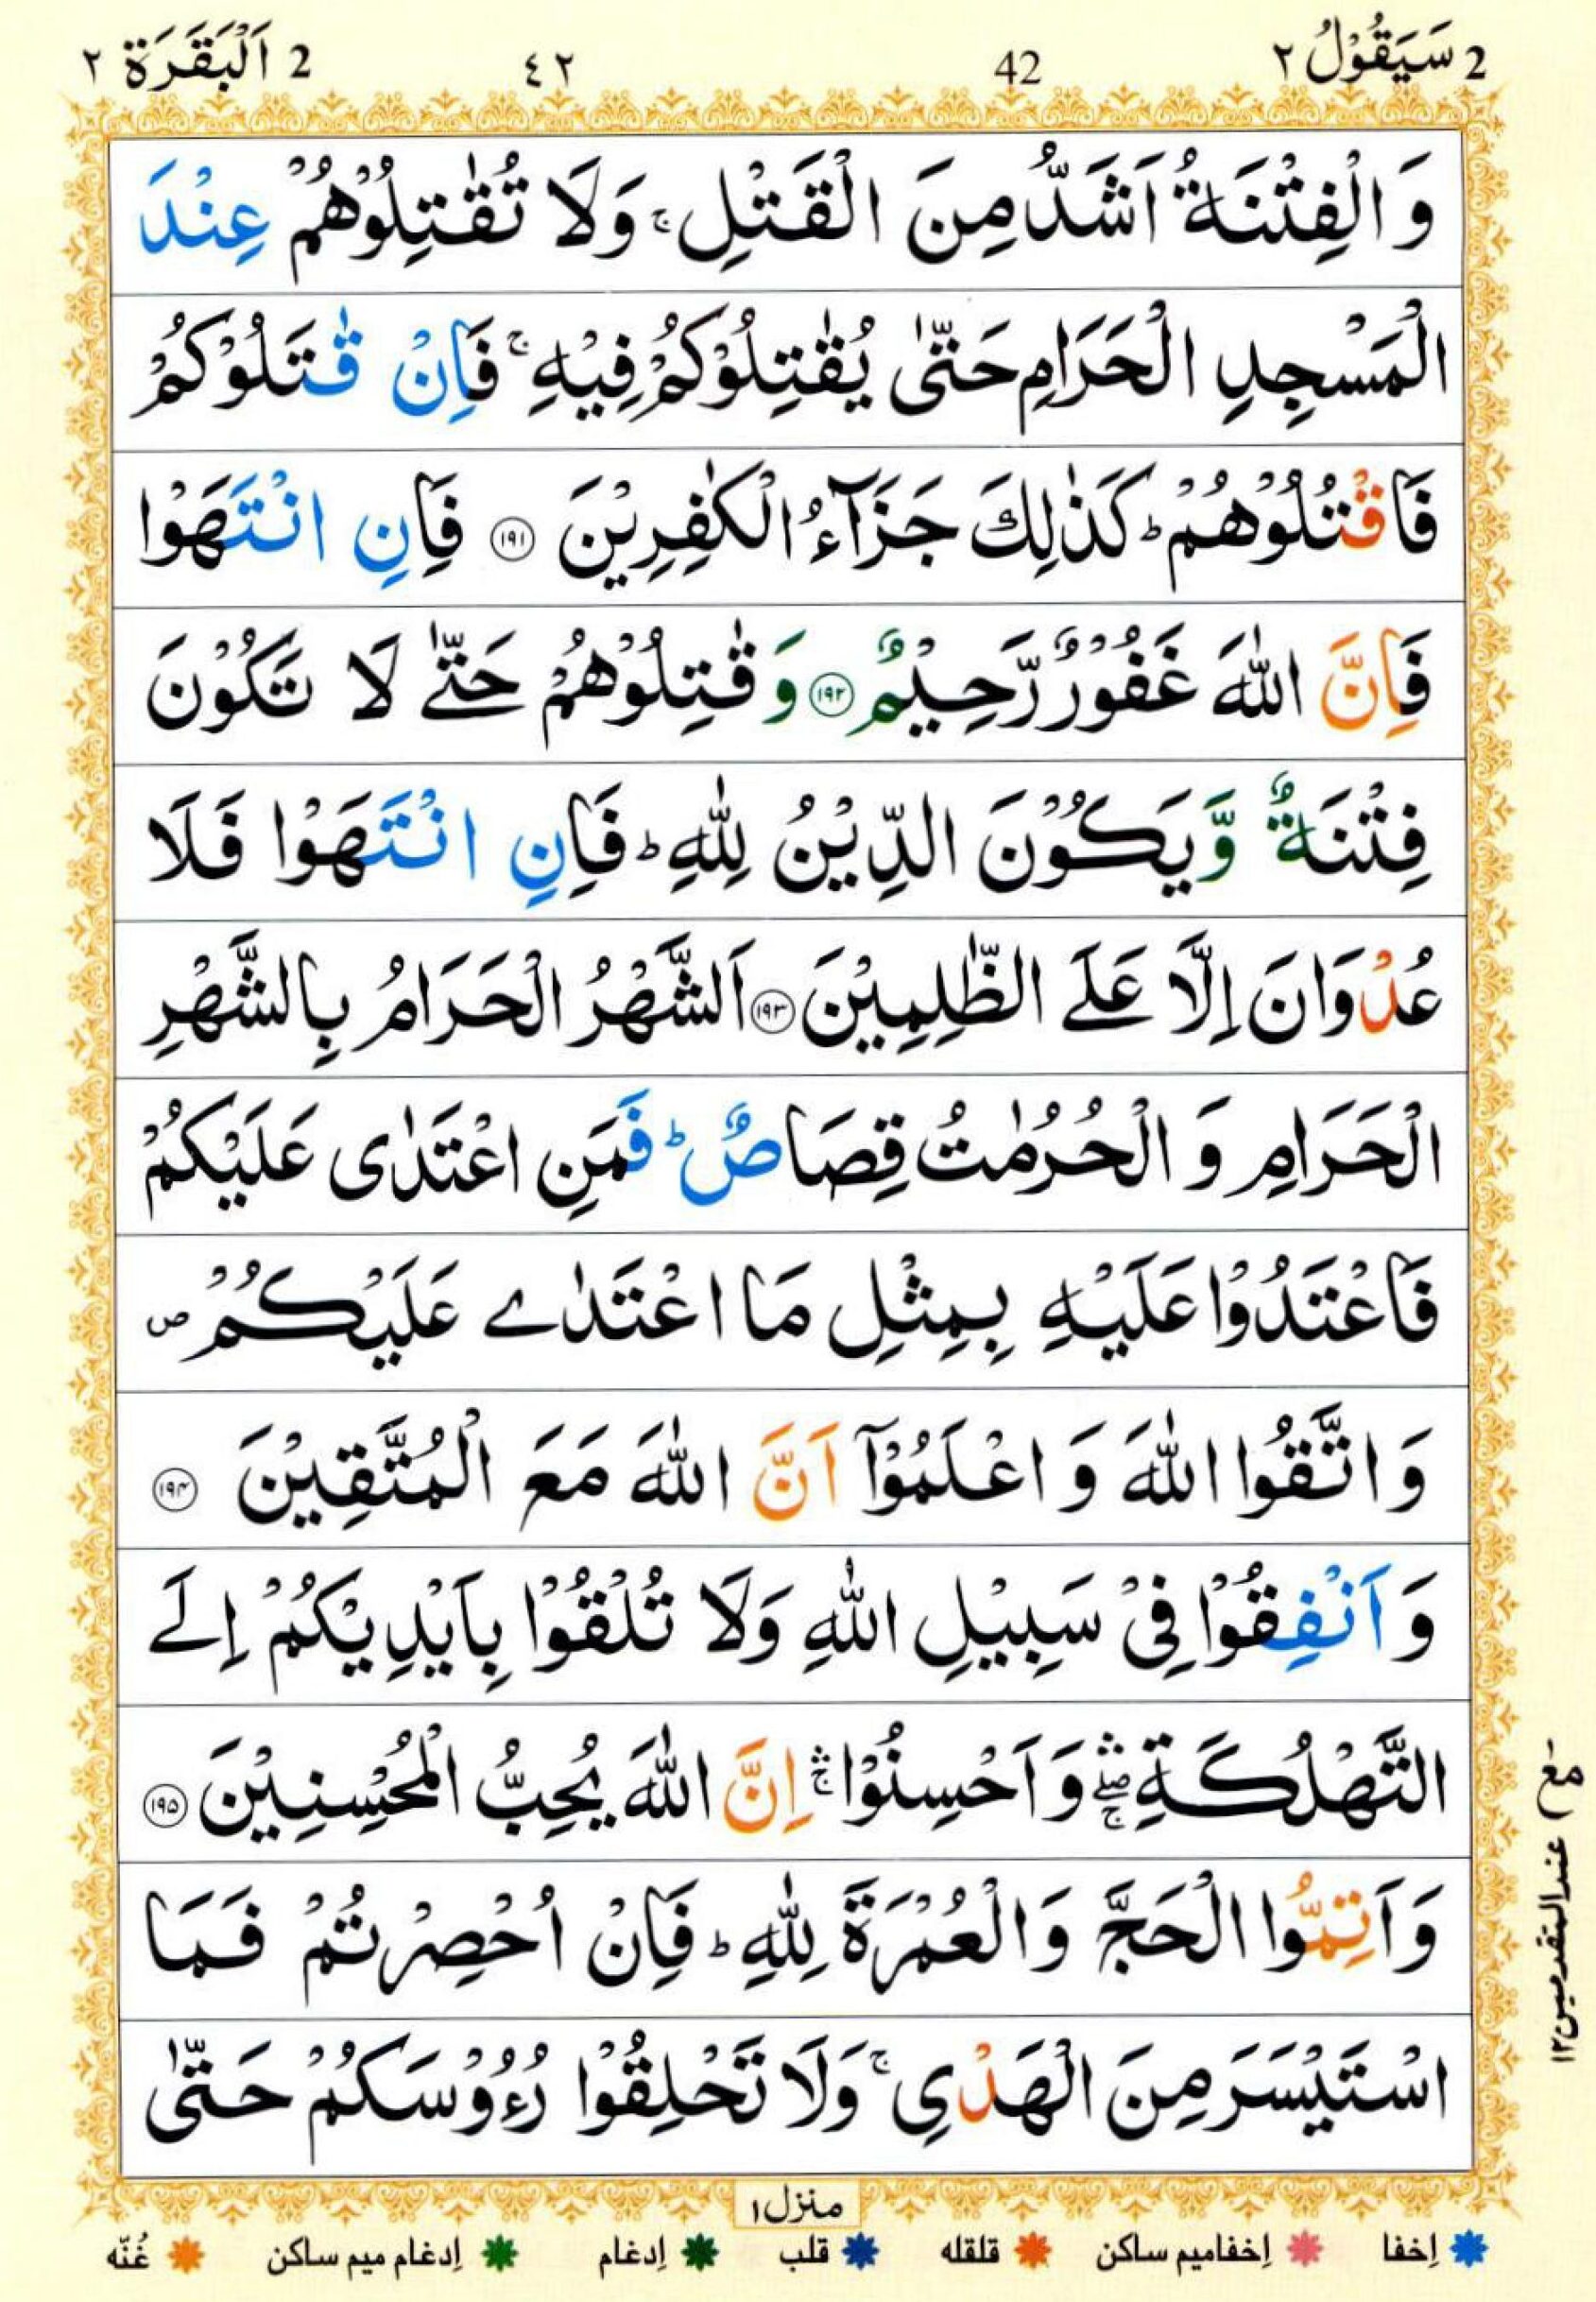 2 سَيَقُوْلُ ٢ 42 ٤٢ 2 اَلْبَقَرَة ٢
وَ الْفِتْنَةُ اَشَدُّ مِنَ الْقَتْلِ ۚ وَلَا تُقٰتِلُوْهُمْ عِنْدَ
الْمَسْجِدِ الْحَرَامِ حَتّٰى يُقٰتِلُوْكُمْ فِيْهِ ۚ فَاِنْ قٰتَلُوْكُمْ
فَاقْتُلُوْهُمْ ؕ كَذٰلِكَ جَزَآءُ الْكٰفِرِيْنَ ۝۱۹۱ فَاِنِ انْتَهَوْا
فَاِنَّ اللّٰهَ غَفُوْرٌ رَّحِيْمٌ ۝۱۹۲ وَ قٰتِلُوْهُمْ حَتّٰے لَا تَكُوْنَ
فِتْنَةٌ وَّ يَكُوْنَ الدِّيْنُ لِلّٰهِ ؕ فَاِنِ انْتَهَوْا فَلَا
عُدْوَانَ اِلَّا عَلَے الظّٰلِمِيْنَ ۝۱۹۳ اَلشَّهْرُ الْحَرَامُ بِالشَّهْرِ
الْحَرَامِ وَ الْحُرُمٰتُ قِصَاصٌ ؕ فَمَنِ اعْتَدٰى عَلَيْكُمْ
فَاعْتَدُوْا عَلَيْهِ بِمِثْلِ مَا اعْتَدٰے عَلَيْكُمْ ص
وَ اتَّقُوا اللّٰهَ وَ اعْلَمُوْٓا اَنَّ اللّٰهَ مَعَ الْمُتَّقِيْنَ ۝۱۹۴
وَ اَنْفِقُوْا فِيْ سَبِيْلِ اللّٰهِ وَلَا تُلْقُوْا بِاَيْدِيْكُمْ اِلَے
التَّهْلُكَةِ ۛۖۚ وَ اَحْسِنُوْا ۛۚ اِنَّ اللّٰهَ يُحِبُّ الْمُحْسِنِيْنَ ۝۱۹۵
وَ اَتِمُّوا الْحَجَّ وَ الْعُمْرَةَ لِلّٰهِ ؕ فَاِنْ اُحْصِرْتُمْ فَمَا
اسْتَيْسَرَ مِنَ الْهَدْيِ ۚ وَلَا تَحْلِقُوْا رُءُوْسَكُمْ حَتّٰى
مع عند المتقدمين ۱۲
منزل ۱
اِخفا اِخفامیم ساکن قلقله قلب اِدغام اِدغام میم ساکن غُنّه